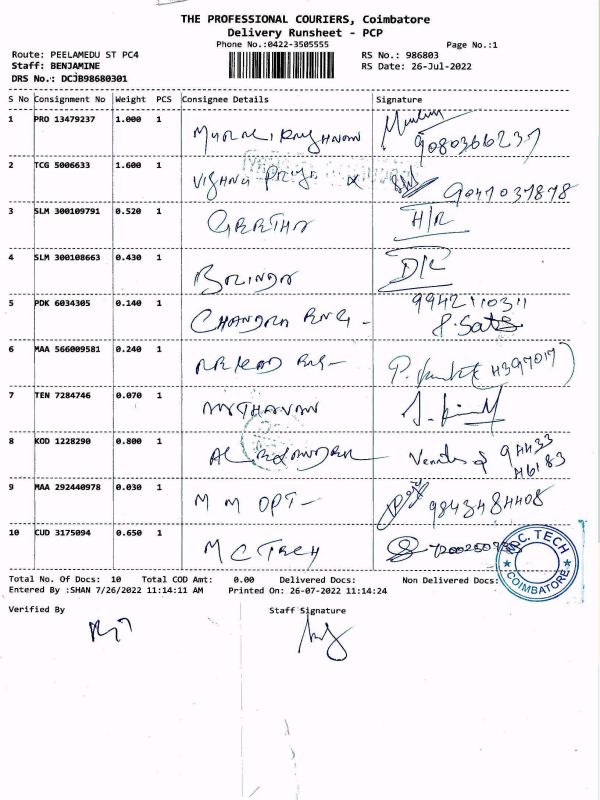 THE PROFESSIONAL COURIERS, Coimbatore
Delivery Runsheet - PCP
Phone No.:0422-3505555
Page No.:1
Route: PEELAMEDU ST PC4
RS No.: 986803
Staff: BENJAMINE
RS Date: 26-Jul-2022
DRS No.: DCJB98680301
S No Consignment No Weight PCS Consignee Details Signature
1 PRO 13479237 1.000 1
9080366237
2 TCG 5006633 1.600 1 VISHNU PRIYA
9047037878
3 SLM 300109791 0.520 1 GEETHA H/R
4 SLM 300108663 0.430 1 D/C
5 PDK 6034305 0.140 1 CHANDRA ENG -
9942110311
P. Sats
6 MAA 566009581 0.240 1
7 TEN 7284746 0.070 1
8 KOD 1228290 0.800 1 94433
46183
9 MAA 292440978 0.030 1 M M OPT - 9843484408
10 CUD 3175094 0.650 1 M C TECH
M.C. TECH
COIMBATORE
Total No. Of Docs: 10 Total COD Amt: 0.00 Delivered Docs: Non Delivered Docs:
Entered By :SHAN 7/26/2022 11:14:11 AM Printed On: 26-07-2022 11:14:24
Verified By Staff Signature